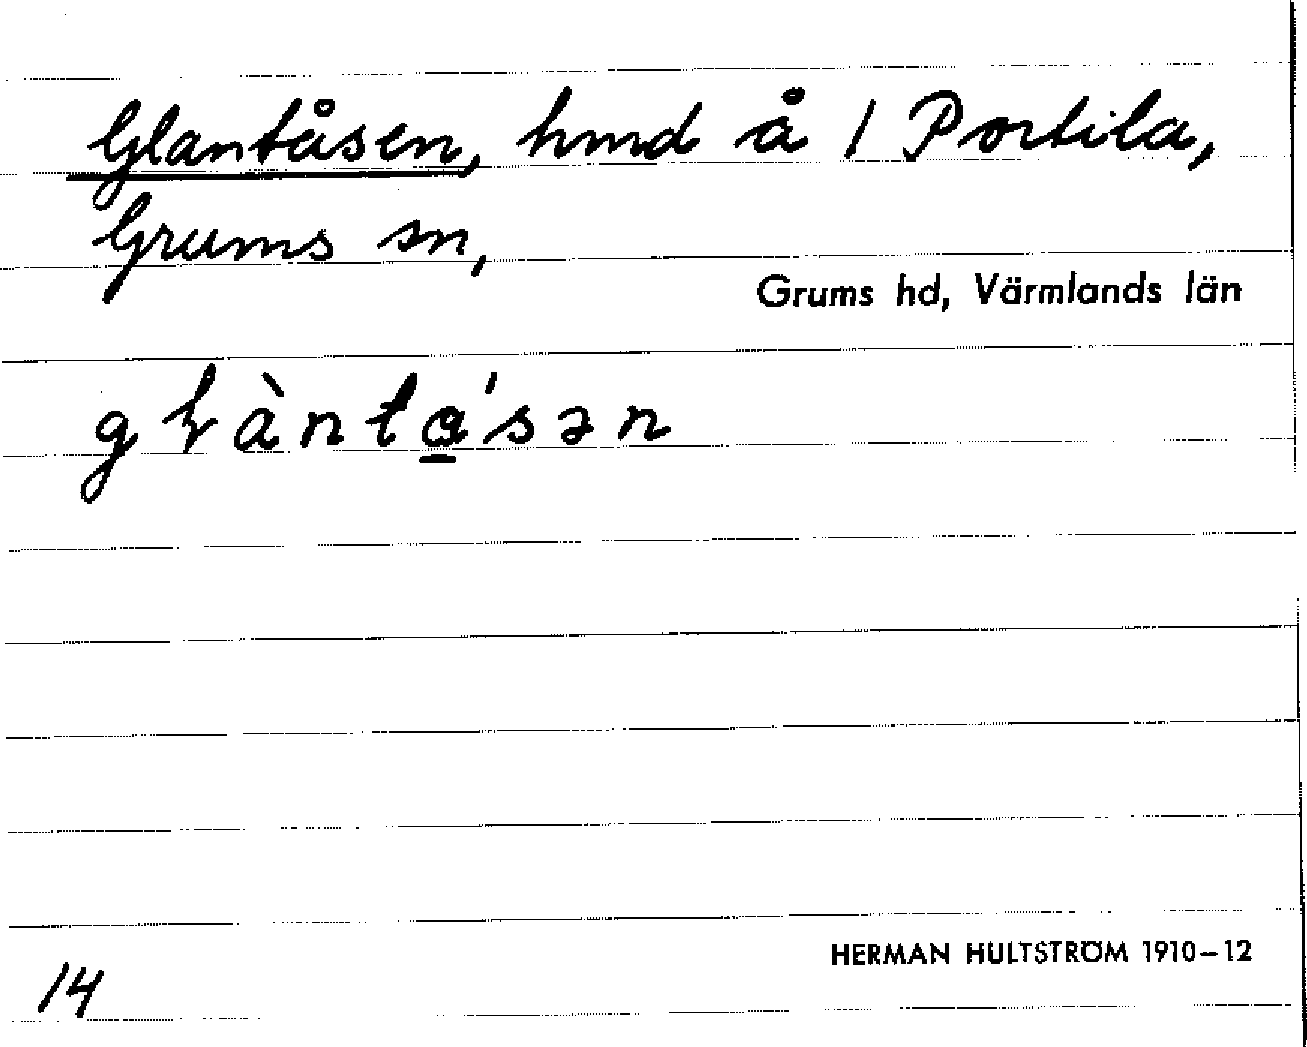 Glantåsen, hmd å 1 Portila,
Grums sn,
Grums hd, Värmlands län
gɽàntά̱sən
HERMAN HULTSTRÖM 1910–12
14